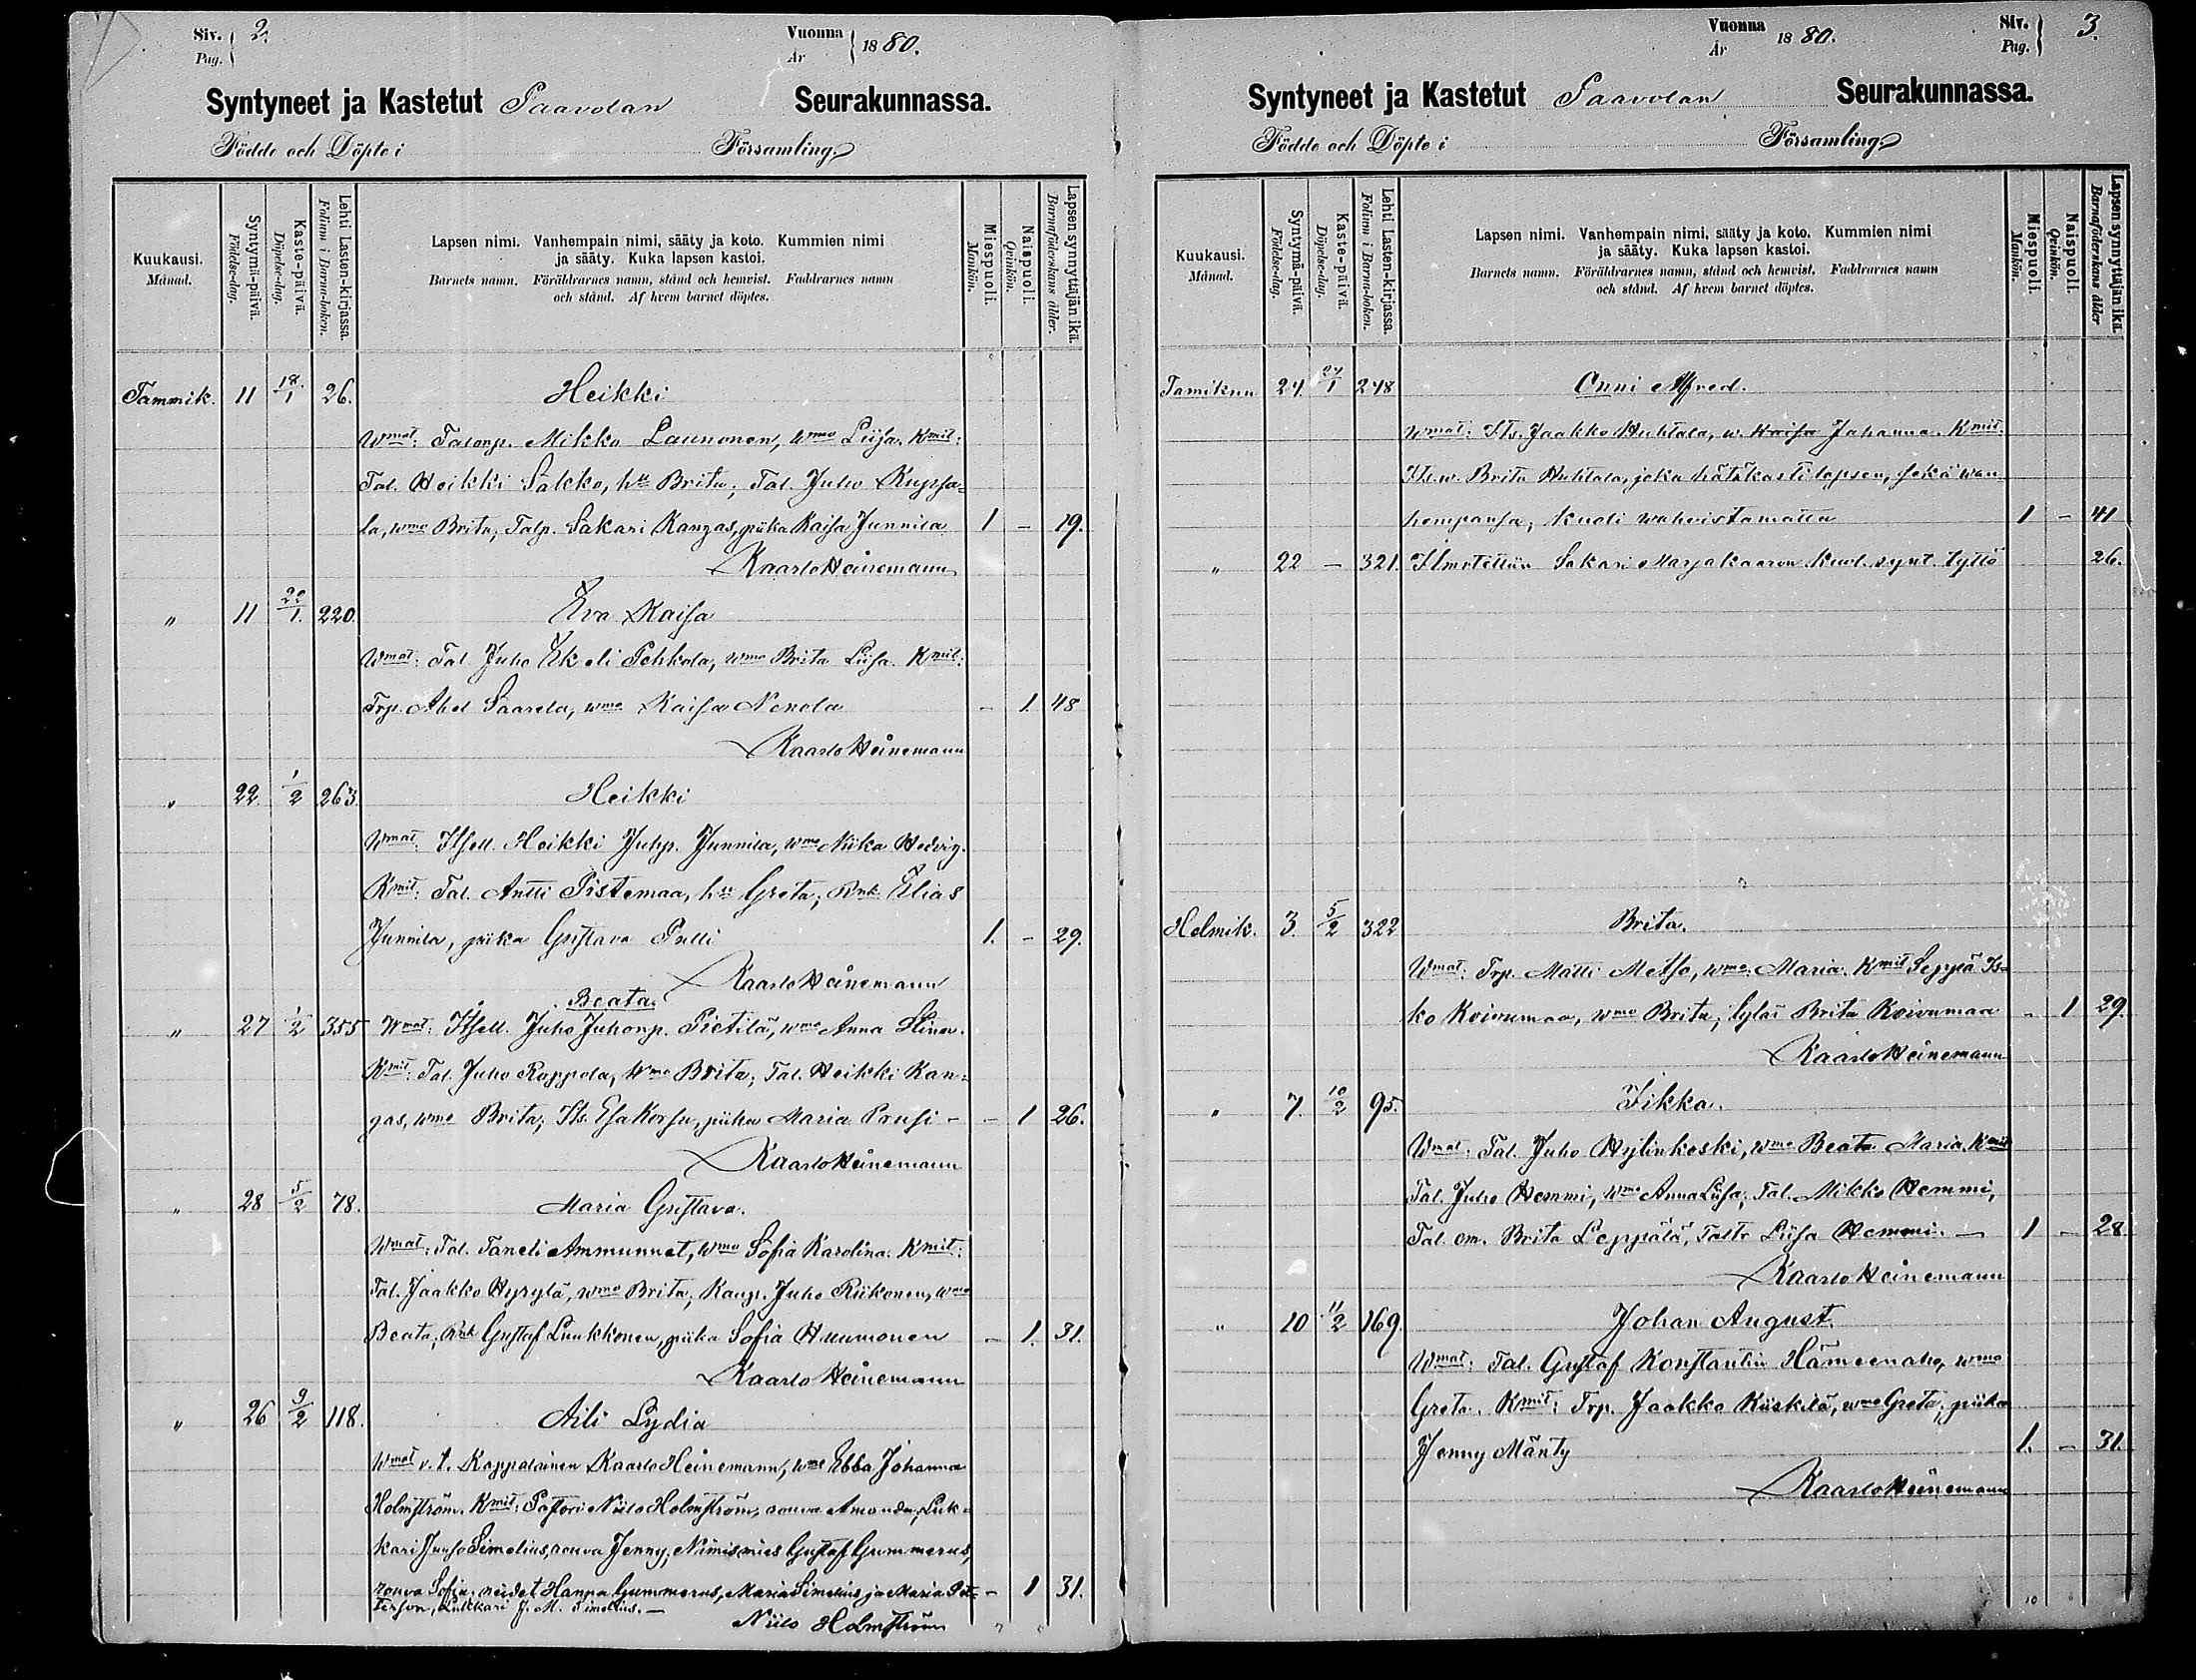 Siv. 2.
Pag.
Vuonna 1880.
År
Syntyneet ja Kastetut Paavolan Seurakunnassa.
Födde och Döpte i Församling
Kuukausi.
Månad.
Syntymä-päivä.
Födelse-dag.
Kaste-päivä.
Döpelse-dag.
Lehti Lasten-kirjassa.
Folium i Barna-boken.
Lapsen nimi. Vanhempain nimi, sääty ja koto. Kummien nimi
ja sääty. Kuka lapsen kastoi.
Barnets namn. Föräldrarnes namn, stånd och hemvist. Faddrarnes namn
och stånd. Af hvem barnet döptes.
Miespuoli.
Mankön.
Naispuoli.
Qvinkön.
Lapsen synnyttäjän ikä.
Barnaföderskans ålder.
Tammik. 11 18/1 26. Heikki
Wmat: Talonp. Mikko Launonen, wmo Liisa. Kmit:
Tal. Heikki Sakko, Brita; Tal. Juho Kupsa-
la, wmo Brita, Talp. Sakari Kangas, piika Kaisa Junnila 1 – 19.
Kaarlo Heinemann
" 11 22/1. 220. Eva Kaisa
Wmat: Tal. Juho Eh. eli Pehkola, wmo Brita Liisa. Kmit:
Trp. Abel Saarela, wmo Kaisa Nenola – 1. 48
Kaarlo Heinemann
" 22. 1/2 263. Heikki
Wmat: Itsell. Heikki Juhp. Junnila, wmo Niika Hedvig.
Kmit: Tal. Antti Pistemaa, Greta; Rnk. Elias
Junnila, piika Gustava Pulli 1. – 29.
Kaarlo Heinemann
Beata.
" 27 1/2 355 Wmat: Itsell. Juho Juhonp. Pietilä, wmo Anna Stina.
Kmit: Tal. Juho Roppola, wmo Brita; Tal. Heikki Kan-
gas, wmo Brita; Its. Esa Korsu, piika Maria Pousi – – 1 26.
Kaarlo Heinemann
" 28 5/2 78. Maria Gustava.
Wmat: Tal. Taneli Ammunnet, wmo Sofia Karolina. Kmit:
Tal. Jaakko Hyrylä, wmo Brita; Kaup. Juho Riikonen, wmo
Beata; Rnk Gustaf Luukkonen, piika Sofia Huumonen – 1. 31.
Kaarlo Heinemann
" 26 9/2 118. Aili Lydia
Wmat v. t. Kappalainen Kaarlo Heinemann, wmo Ebba Johanna
Holmström. Kmit: Pastori Niilo Holmström, rouva Amanda; Luk-
kari Juho Simelius, rouva Jenny; Nimismies Gustaf Gummerus,
rouva Sofia; neidet Hanna Gummerus, Maria Simelius ja Maria Pet- – 1 31.
terson, Lukkari J. M. Simelius. –
Niilo Holmström
Vuonna 1880.
År
Siv. 3.
Pag.
Syntyneet ja Kastetut Paavolan Seurakunnassa.
Födde och Döpte i Församling
Kuukausi.
Månad.
Syntymä-päivä.
Födelse-dag.
Kaste-päivä.
Döpelse-dag.
Lehti Lasten-kirjassa.
Folium i Barna-boken.
Lapsen nimi. Vanhempain nimi, sääty ja koto. Kummien nimi
ja sääty. Kuka lapsen kastoi.
Barnets namn. Föräldrarnes namn, stånd och hemvist. Faddrarnes namn
och stånd. Af hvem barnet döptes.
Miespuoli.
Mankön.
Naispuoli.
Qvinkön.
Lapsen synnyttäjän ikä.
Barnaföderskans ålder
Tamikuu 24. 24/1 248 Onni Alfred.
Wmat: Its. Jaakko Huhtala, w. Kaisa Johanna. Kmit:
Its. w. Brita Huhtala, joka hätäkasti lapsen, sekä wan
hempansa; kuoli wahvistamatta 1 – 41
" 22 – 321. Ilmotettiin Sakari Marjakaaron kuol. synt. tyttö 26.
Helmik. 3. 5/2 322 Brita.
Wmat: Trp. Matti Metso, wmo. Maria. Kmit Seppä Is-
ko Koivumaa, wmo Brita; Brita Koivumaa – 1 29.
Kaarlo Heinemann
" 7. 10/2 95. Iikka.
Wmat: Tal. Juho Hylinkoski, wmo Beata Maria. Kmit
Tal. Juho Hemmi, wmo Anna Liisa; Tal. Mikko Hemmi,
Tal. em. Brita Leppälä, Taltr Liisa Hemmi. – 1 – 28
Kaarlo Heinemann
" 10 11/2 169. Johan August.
Wmat: Tal. Gustaf Konstantin Hämeenaho, wmo
Greta. Kmit: Trp. Jaakko Kiiskilä, wmo Greta; piika
Jenny Mänty 1. – 31.
Kaarlo Heinemann